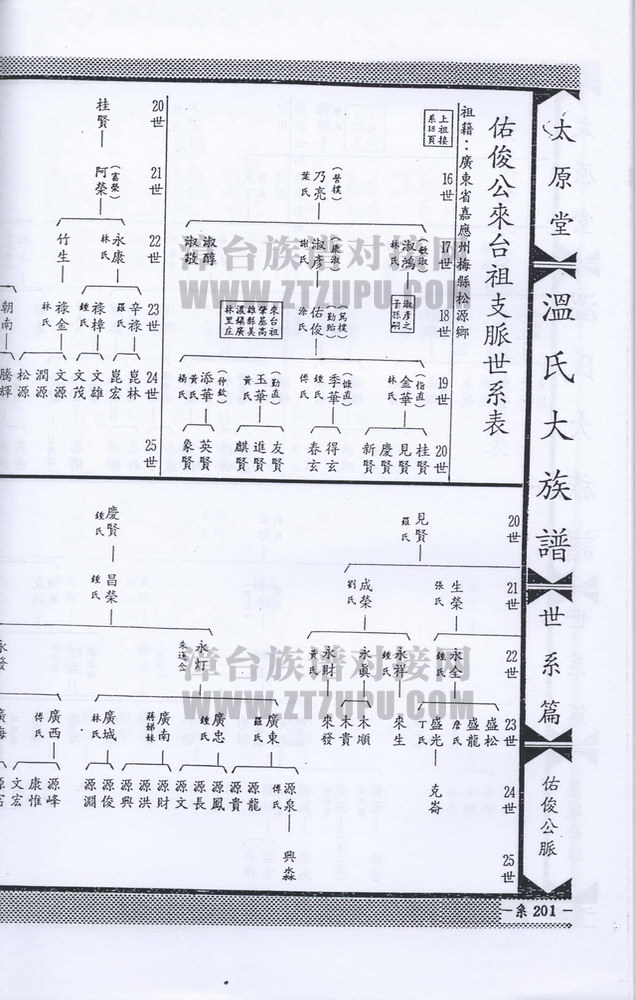 太原堂
溫氏大族譜
世系篇
佑俊公脈
系 201
佑俊公來台祖支脈世系表
祖籍：廣東省嘉應州梅縣松源鄉
上祖接
系18頁
16世
17世
18世
19世
20世
(營樸)
乃亮
葉氏
(敏淑)
淑鴻
林氏
(康淑)
淑彥
謝氏
淑醇
淑啟
淑彥之
子孫嗣
(篤樸)
(勤貽)
佑俊
涂氏
來台祖
肇基高
雄縣美
濃鎮廣
林里庄
(指直)
金華
林氏
(慷直)
季華
鍾氏
傅氏
(勤直)
玉華
黃氏
(仲欽)
添華
黃氏
楊氏
桂賢
見賢
慶賢
新賢
得玄
春玄
友賢
進賢
麒賢
英賢
象賢
20世
21世
22世
23世
24世
25世
桂賢
(富榮)
阿榮
永康
林氏
竹生
辛祿
羅氏
祿樟
鍾氏
祿金
林氏
朝南
崑林
崑宏
文雄
文茂
文源
潤源
松源
騰輝
20世
21世
22世
23世
24世
25世
見賢
羅氏
生榮
張氏
成榮
劉氏
永全
鍾氏
永祥
鍾氏
永貞
永財
黃氏
盛松
盛龍
詹氏
盛光
丁氏
來生
木順
木貴
來發
克崙
慶賢
鍾氏
昌榮
鍾氏
永灯
廣東
羅氏
廣忠
鍾氏
廣南
廣城
林氏
廣西
傅氏
源泉
傅氏
源龍
源貴
源鳳
源長
源文
源財
源洪
源興
源俊
源淵
源峰
康惟
文宏
興淼
漳台族谱对接网
WWW.ZTZUPU.COM
漳台族谱对接网
WWW.ZTZUPU.COM